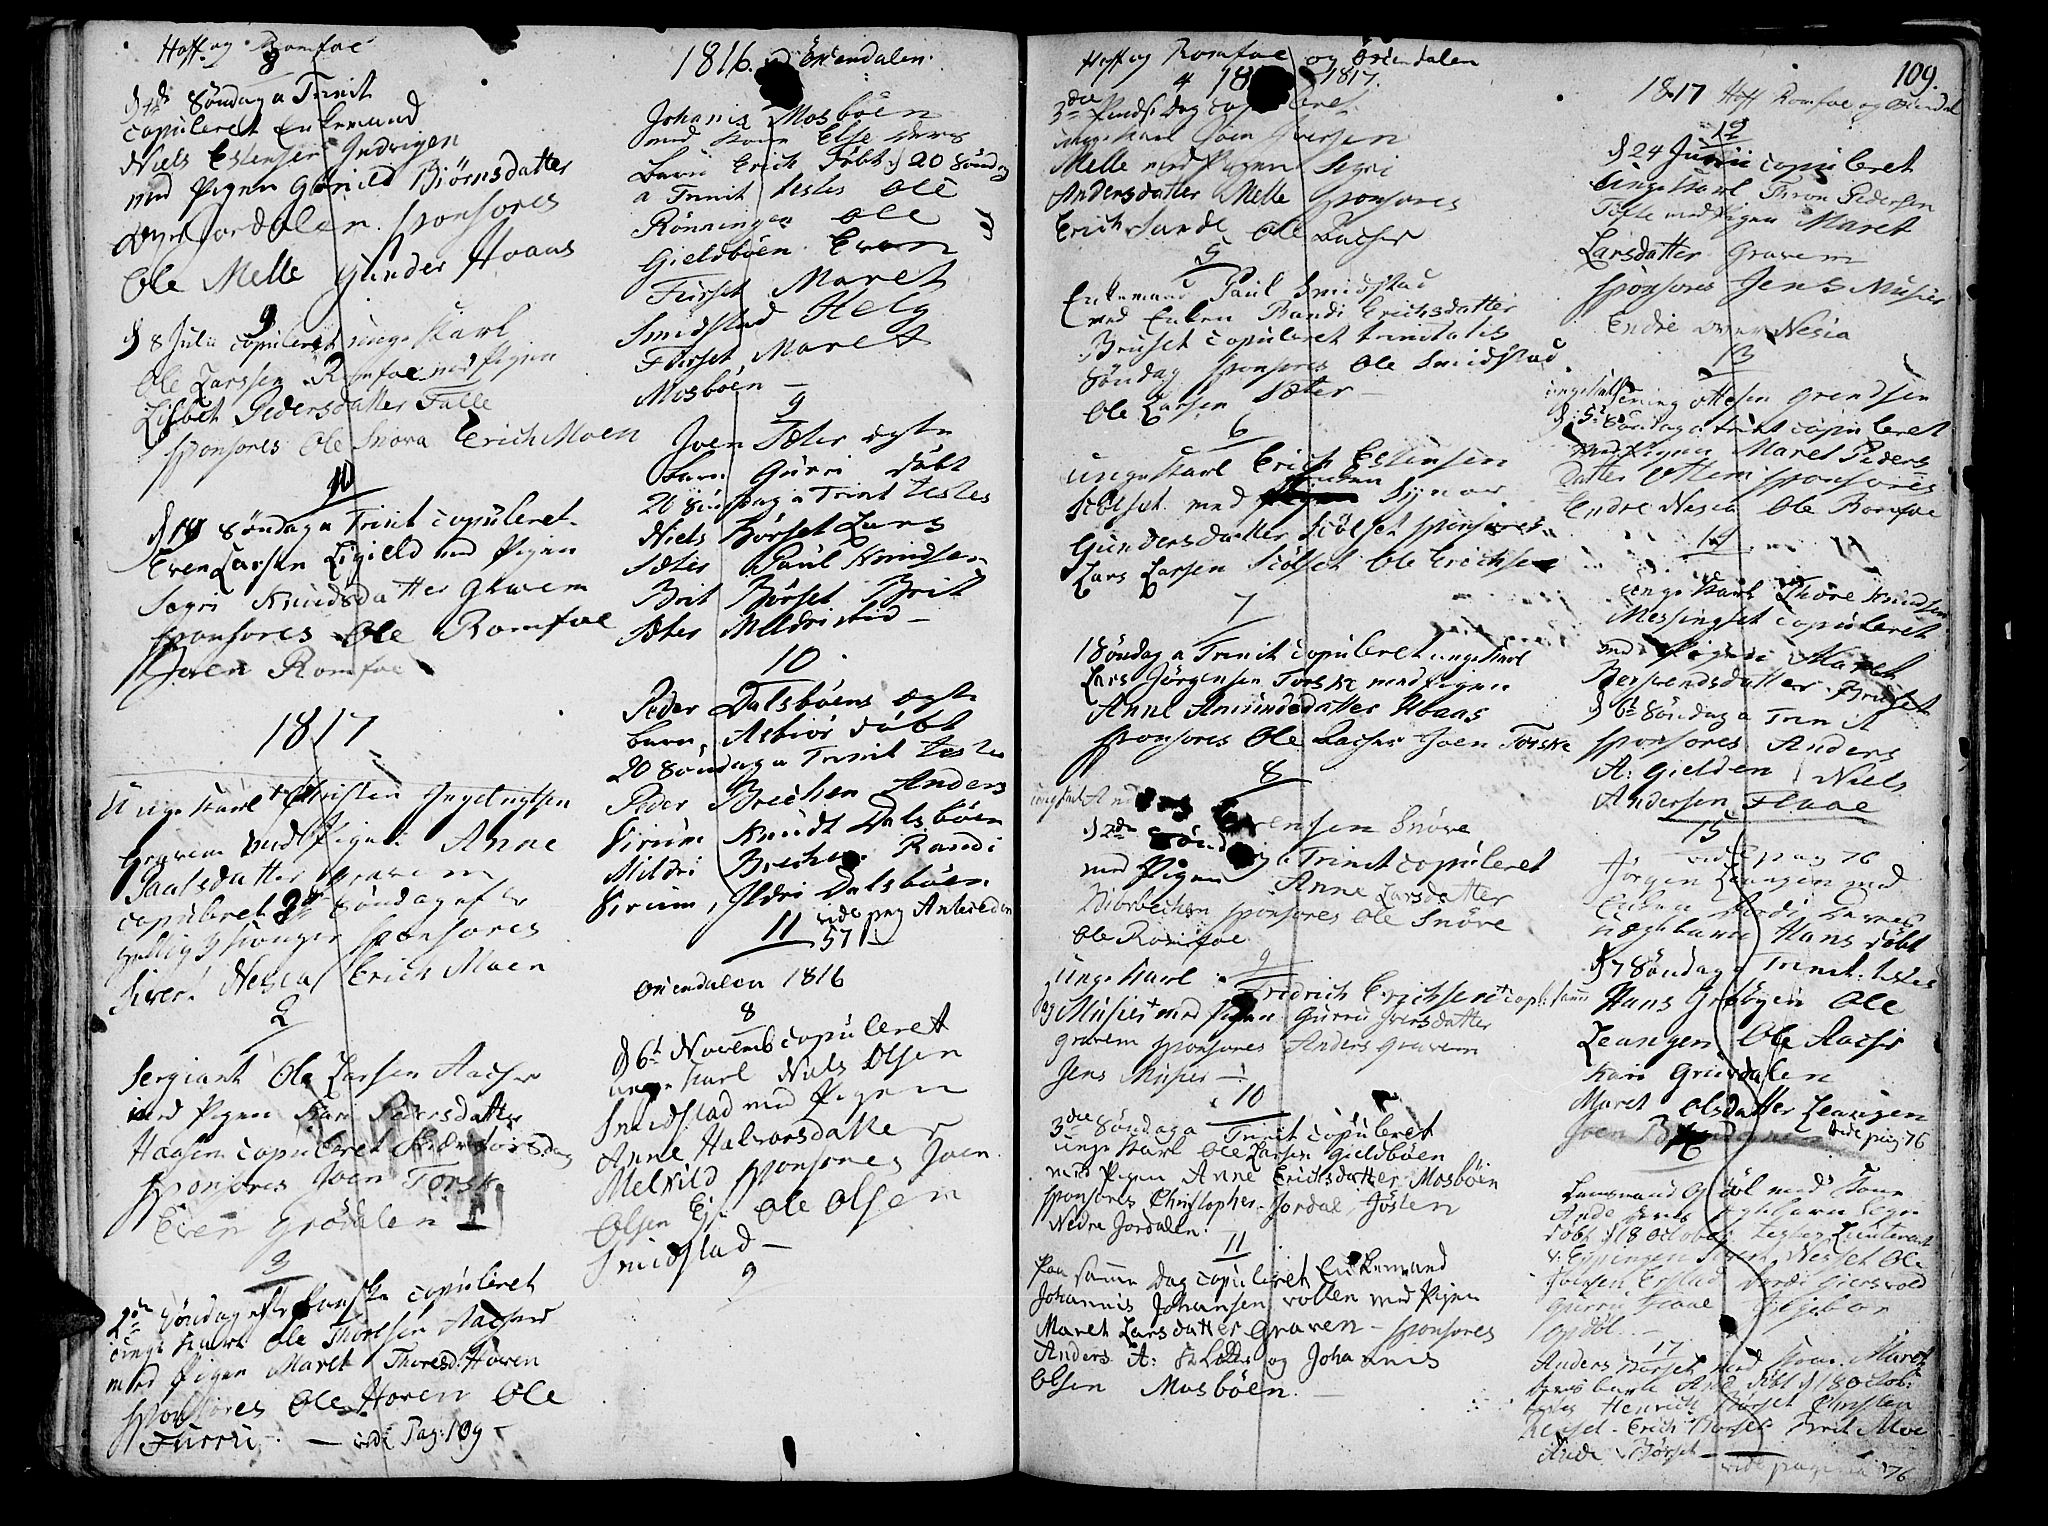 Hoff og Romfoe
8
d 4de Söndag a Trinit
copuleret Enkemand
Niels Estensen Indrigen
med Pigen Gunild Biörnsdatter
Jordalen sponsores
Ole Melle Gunder Hoaas
9
d 8 Julii copuleret unge Karl
Ole Larssen Romfoe med Pigen
Lisbet Pedersdatter Falle
sponsores Ole Snöva Erich Moen
10
d 18 Söndag a Trinit copuleret
Even Larsen Ligield med Pigen
Segri Knudsdatter Gravem
sponsores Ole Romfoe
Joen Romfoe
1817
Unge Karl Christen Ingebrigtsen
Gravem med Pigen Anne
Paalsdatter Gravem
copuleret 3de Söndag efter
hellig 3 konger sponsores
Sivert Nesia Erich Moen
2
Sergiant Ole Larsen Aachsr
med Pigen Kari Pedersdatter
Haasen copuleret
sponsores Joen Torske
Even Gröedalen
3
2de Söndag efter Paaske copuleret
unge Karl Ole Thoresen
med Pigen Maret Thoresd: Hoven
sponsores Ole Hoven Ole
Furru — vide Pag: 109
1816. Öriendalen.
Johanis Mosböen
med Kone Else deres
Barn Erich Döbt d 20 Sönd
a Trinit testes Ole
Rönningen Ole
Gieldböen Even
Furset Maret
Smidstad Helg
Furset Maret
Mosböen —
9
Joen Sæter ægte
Barn Gurri döbt
20 Söndag a Trinit testes
Niels Börset Lars
Sæter Paul Knudsen
Brit Börset Brit
Sæter Meldristad —
10
Peder Dalsböens ægte
barn, Asbiör döbt
20 Söndag a Trinit testes
Peder Brechen Anders
Virum Knudt Dalsböen
Mildri Brechen Randi
Virum, Ildri Dalsböen
vide pag Anteceden
11 57
Öriendalen 1816
8
d 6t Novemb copuleret
unge Karl Niels Olsen
Smidstad med Pigen
Anne Halvorsdatter
Melkild sponsores Joen
Olsen Ole Olsen
Smidstad —
9
Hoff og Romfoe og Öriendalen
4 18 1817.
3die Pindse Dag copuleret
unge Karl Joen Iversen
Melle med Pigen Segri
Andersdatter Melle sponsores
Erich Sande Ole Aachsr
5
Enkemand Paul Smidstad
med Enken Randi Erichsdatter
Bruset copuleret trinitatis
Söndag sponsores Ole Smidstad
Ole Larsen Sæter —
6
unge Karl Erich Estensen
Scölset med Enken Synor
Gundersdatter Scölset sponsores
Lars Larsen Scölset Ole Erichsen
7
1 Söndag a Trinit copuleret unge Karl
Lars Jörgensen Torske med Pigen
Anne Amundsdatter Hoaas
sponsores Ole Aachsr Joen Torske
8
unge Karl And
d 2de Söndag a Trinit copuleret
med Pigen Anne Larsdatter
Biörbechen sponsores Ole Snöve
Ole Romfoe
9
unge Karl Fredrich Erichsen cop: samme
dag Musier med Pigen Gurru Iversdatter
Gravem sponsores Anders Gravem
Jens Musier —
10
3die Söndag a Trinit copuleret
unge Karl Ole Larsen Gieldböen
med Pigen Anne Erichsdatter Mosböen
sponsores Christopher Jordal, Jösten
Nedre Jordalen.
11
Paa samme Dag copuleret Enkemand
Johannis Johansen vollen med Pigen
Maret Larsdatter Graven — sponsores
Anders A: og Johannis
Olsen Mosböen. —
109.
1817 Hoff Romfoe og Öriendal
12
d 24 Junii copuleret
unge Karl Thron Pedersen
Tofte med Pigen Maret
Larsdatter Gravem
sponsores Jens Musier
Endre over Nesia
13
unge Karl Hening Ottesen Grendsen
d: 5t Söndag a trinit copuleret
med Pigen Maret Peders
datter Ottem sponsores
Endre Nesia Ole Romfoe
14
unge Karl Thore Knudsen
Messingset copuleret
med Pigen Maret
Berendsdatter Bruset
d 6t Söndag a Trinit
sponsores Anders
A: Gielden, Niels
Andersen Flaae
15
vide pag 76
Jörgen Leangen med
Enken deres
Uægte barn Hans döbt
d 7 Söndag a Trinit: testes
Hans Gröbyen Ole
Leangen Ole Aachsr
Kari Gruvdalen
Maret Olsdatter Leangen
Joen vide pag 76
Lensmand Opdöl med Kone
Ande deres ægte barn
döbt d 18 October testes Lieutenant
v: Eppingen Sivert Nesset Ole
Joensen Erstad
Gurru Flaae
Opdöl —
17
Anders Börset med Kone Maret
deres barn And döbt d 18 Octob:
testes Henrich Börset Christen
Reiset. Erich Börset Brit Moe
Ande Börset —
vide pagina 76